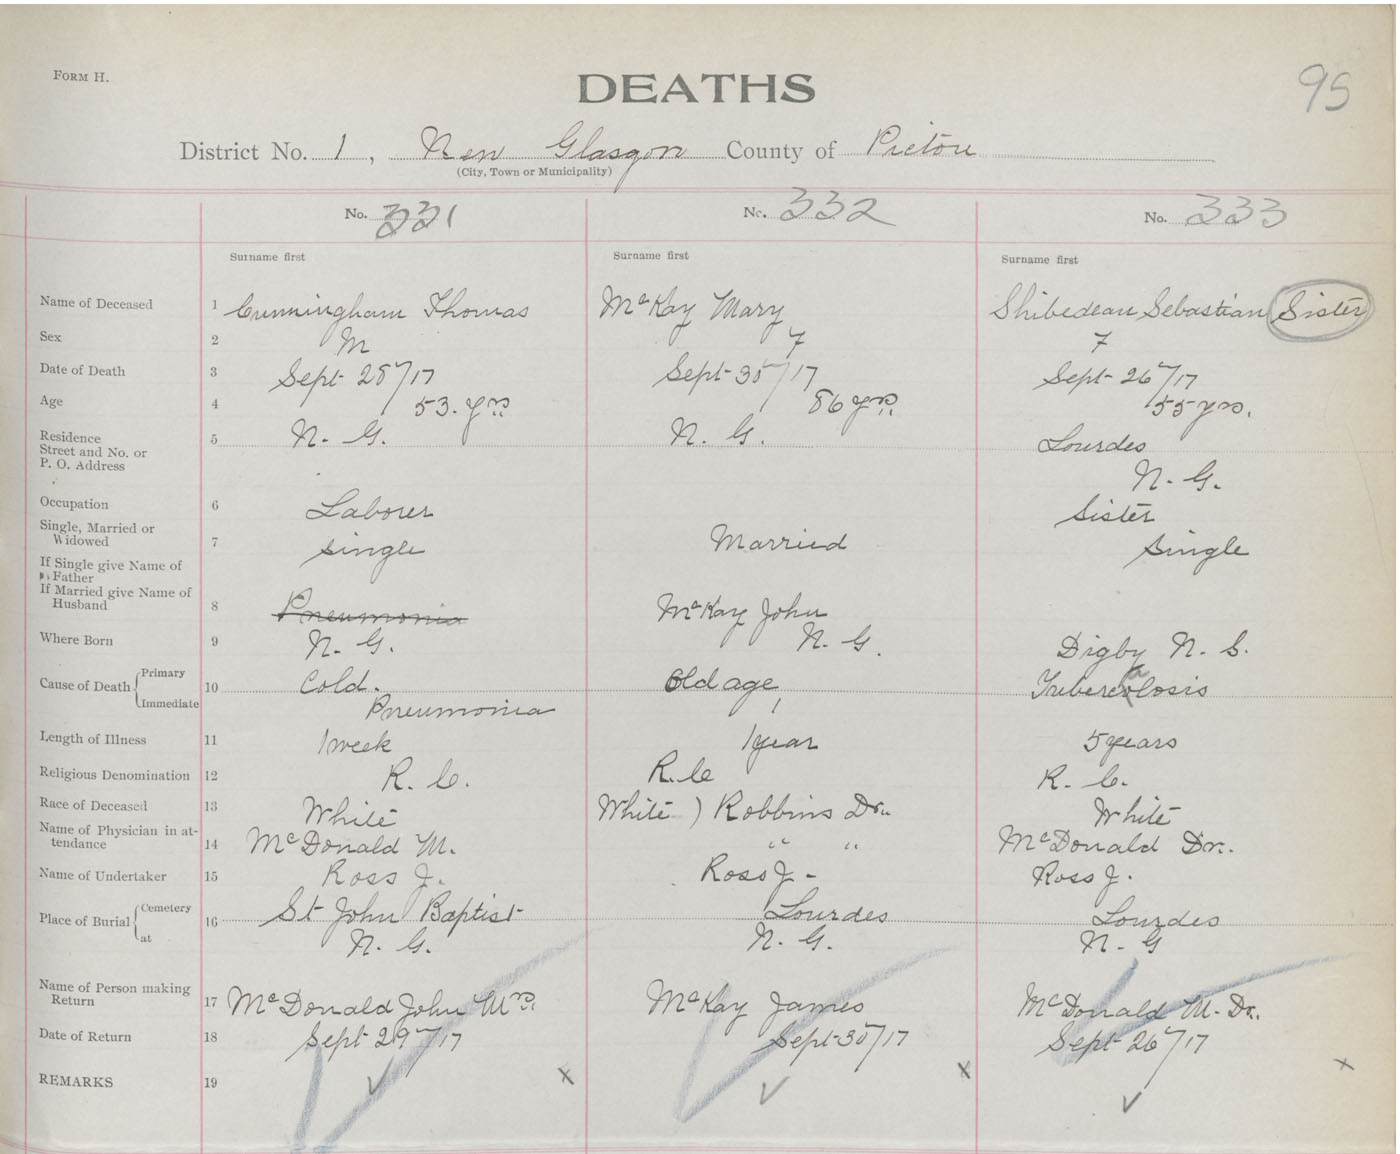 FORM H.
DEATHS
95
District No. 1, New Glasgow County of Pictou
(City, Town or Municipality)
No. 331 No. 332 No. 333
Surname first Surname first Surname first
Name of Deceased 1 Cunningham Thomas McKay Mary Shibedeau Sebastian Sister
Sex 2 M F F
Date of Death 3 Sept 28/17 Sept 30/17 Sept 26/17
Age 4 53. yrs. 86 yrs. 55 yrs.
Residence
Street and No. or 5 N. G. N. G. Lourdes
P. O. Address
N. G.
Occupation 6 Laborer Sister
Single, Married or
Widowed 7 Single Married Single
If Single give Name of
Father
If Married give Name of
Husband 8 Pneumonia McKay John
Where Born 9 N. G. N. G. Digby N. S.
Cause of Death Primary 10 Cold. Old age Tuberculosis
Immediate Pneumonia
Length of Illness 11 1 week 1 year 5 years
Religious Denomination 12 R. C. R. C R. C.
Race of Deceased 13 White White ) Robbins Dr. White
Name of Physician in at-
tendance 14 McDonald M. " " McDonald Dr.
Name of Undertaker 15 Ross J. Ross J - Ross J.
Place of Burial Cemetery 16 St John Baptist Lourdes Lourdes
at N. G. N. G. N. G
Name of Person making
Return 17 McDonald John Mrs. McKay James McDonald M. Dr.
Date of Return 18 Sept 29/17 Sept 30/17 Sept 26/17
REMARKS 19 x x x